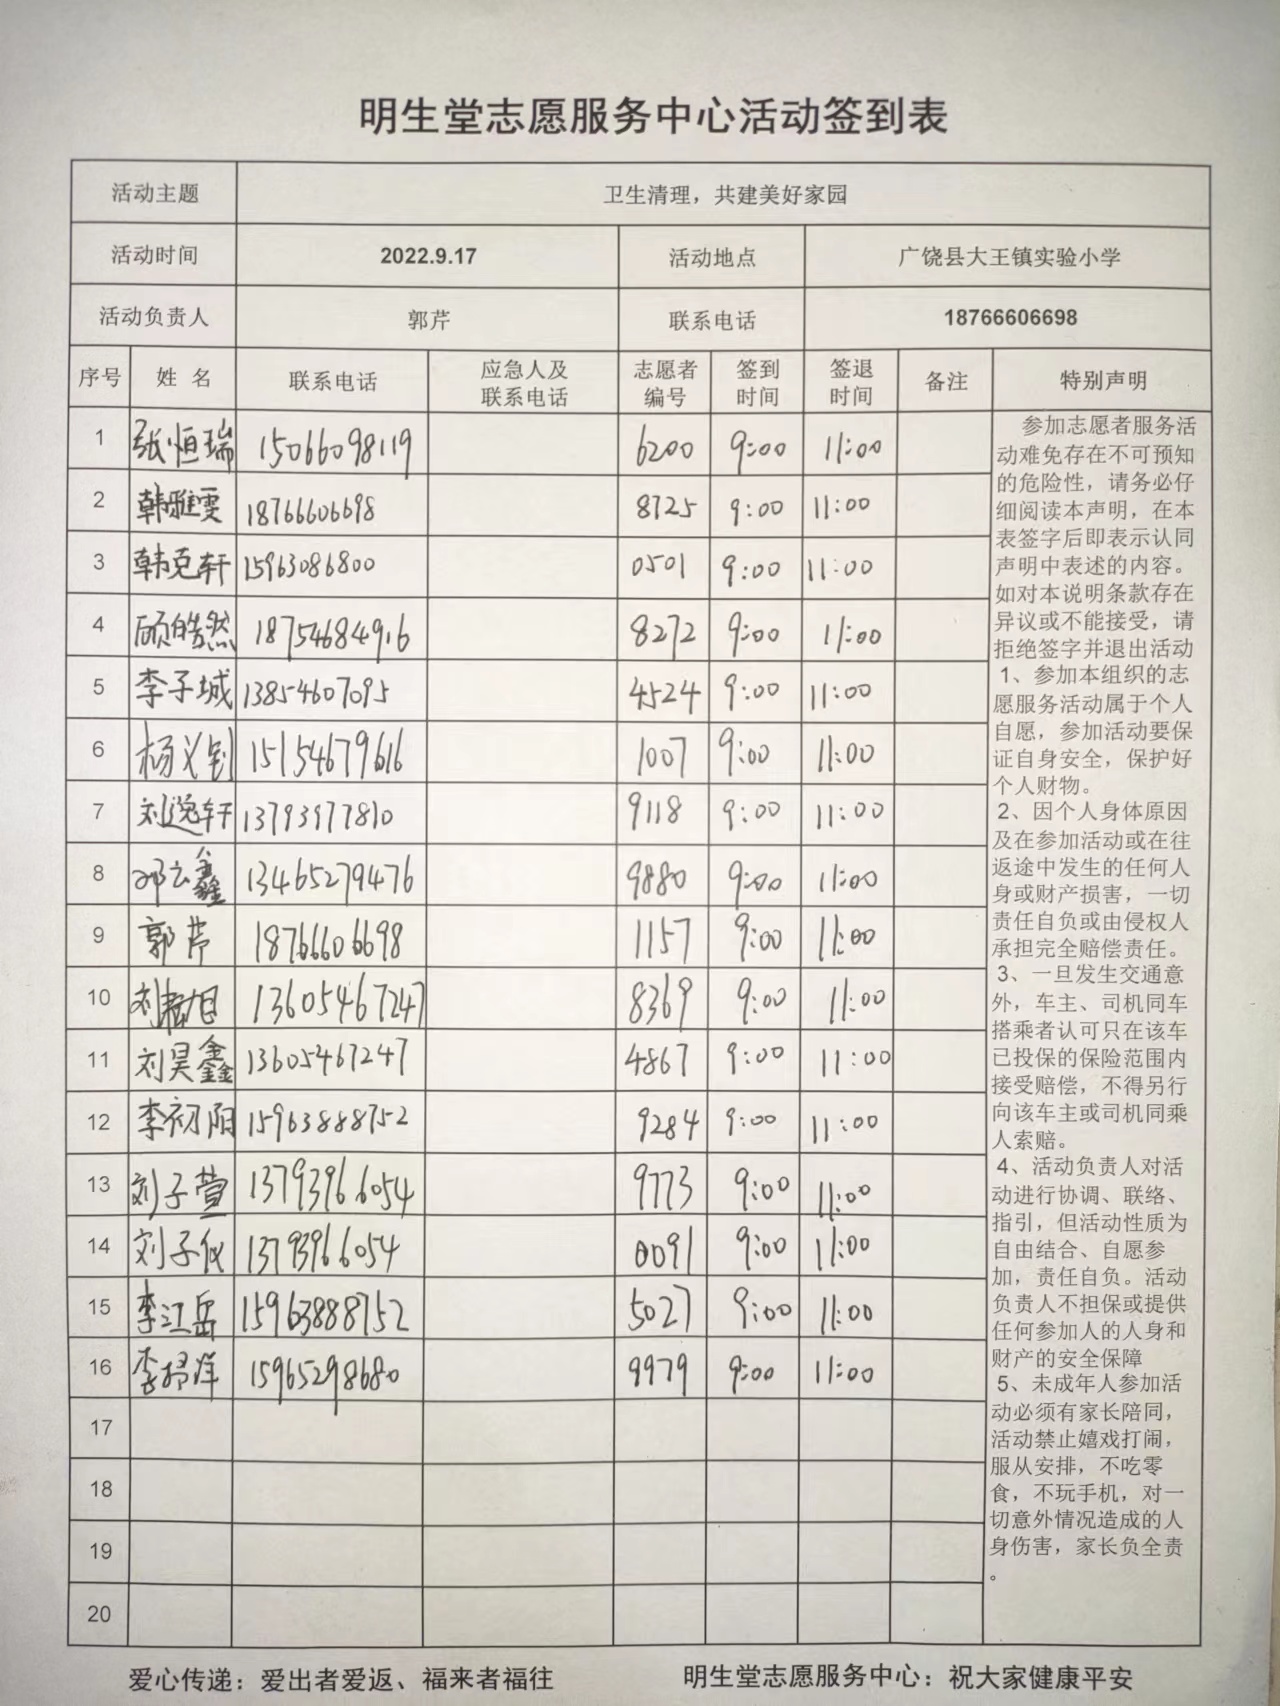 明生堂志愿服务中心活动签到表
活动主题 卫生清理，共建美好家园
活动时间 2022.9.17 活动地点 广饶县大王镇实验小学
活动负责人 郭芹 联系电话 18766606698
序号 姓 名 联系电话 应急人及联系电话 志愿者编号 签到时间 签退时间 备注 特别声明
1 张恒瑞 15066098119 6200 9:00 11:00
2 韩雅雯 18766606698 8725 9:00 11:00
3 韩克轩 15963086800 0501 9:00 11:00
4 顾皓然 18754684916 8272 9:00 11:00
5 李子城 13854607095 4524 9:00 11:00
6 杨义钊 15154679616 1007 9:00 11:00
7 刘逸轩 13793977810 9118 9:00 11:00
8 邓云鑫 13465279476 9880 9:00 11:00
9 郭芹 18766606698 1157 9:00 11:00
10 刘旭 13605467247 8369 9:00 11:00
11 刘昊鑫 13605467247 4867 9:00 11:00
12 李初阳 15963888752 9284 9:00 11:00
13 刘子萱 13793966054 9773 9:00 11:00
14 刘子仪 13793966054 0091 9:00 11:00
15 李江岳 15963888752 5027 9:00 11:00
16 李洋 15965298680 9979 9:00 11:00
17
18
19
20
参加志愿者服务活
动难免存在不可预知
的危险性，请务必仔
细阅读本声明，在本
表签字后即表示认同
声明中表述的内容。
如对本说明条款存在
异议或不能接受，请
拒绝签字并退出活动
1、参加本组织的志
愿服务活动属于个人
自愿，参加活动要保
证自身安全，保护好
个人财物。
2、因个人身体原因
及在参加活动或在往
返途中发生的任何人
身或财产损害，一切
责任自负或由侵权人
承担完全赔偿责任。
3、一旦发生交通意
外，车主、司机同车
搭乘者认可只在该车
已投保的保险范围内
接受赔偿，不得另行
向该车主或司机同乘
人索赔。
4、活动负责人对活
动进行协调、联络、
指引，但活动性质为
自由结合、自愿参
加，责任自负。活动
负责人不担保或提供
任何参加人的人身和
财产的安全保障
5、未成年人参加活
动必须有家长陪同，
活动禁止嬉戏打闹，
服从安排，不吃零
食，不玩手机，对一
切意外情况造成的人
身伤害，家长负全责
。
爱心传递：爱出者爱返、福来者福往 明生堂志愿服务中心：祝大家健康平安